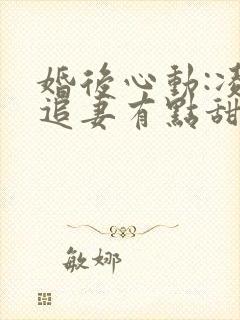 婚後心動:凌
追妻有點甜
敏娜